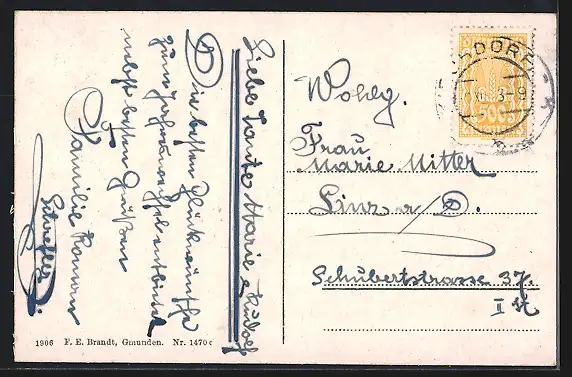 Liebe Tante Marie & Rudolf
Die besten Glückwünsche
zum Jahreswechsel entbietet
nebst besten Grüßen
Familie Roman
Wohlg.
Frau
Marie Mitter
Linz a/D.
Schubertstrasse 37.
II St
DORF
500
1906 F. E. Brandt, Gmunden. Nr. 1470c